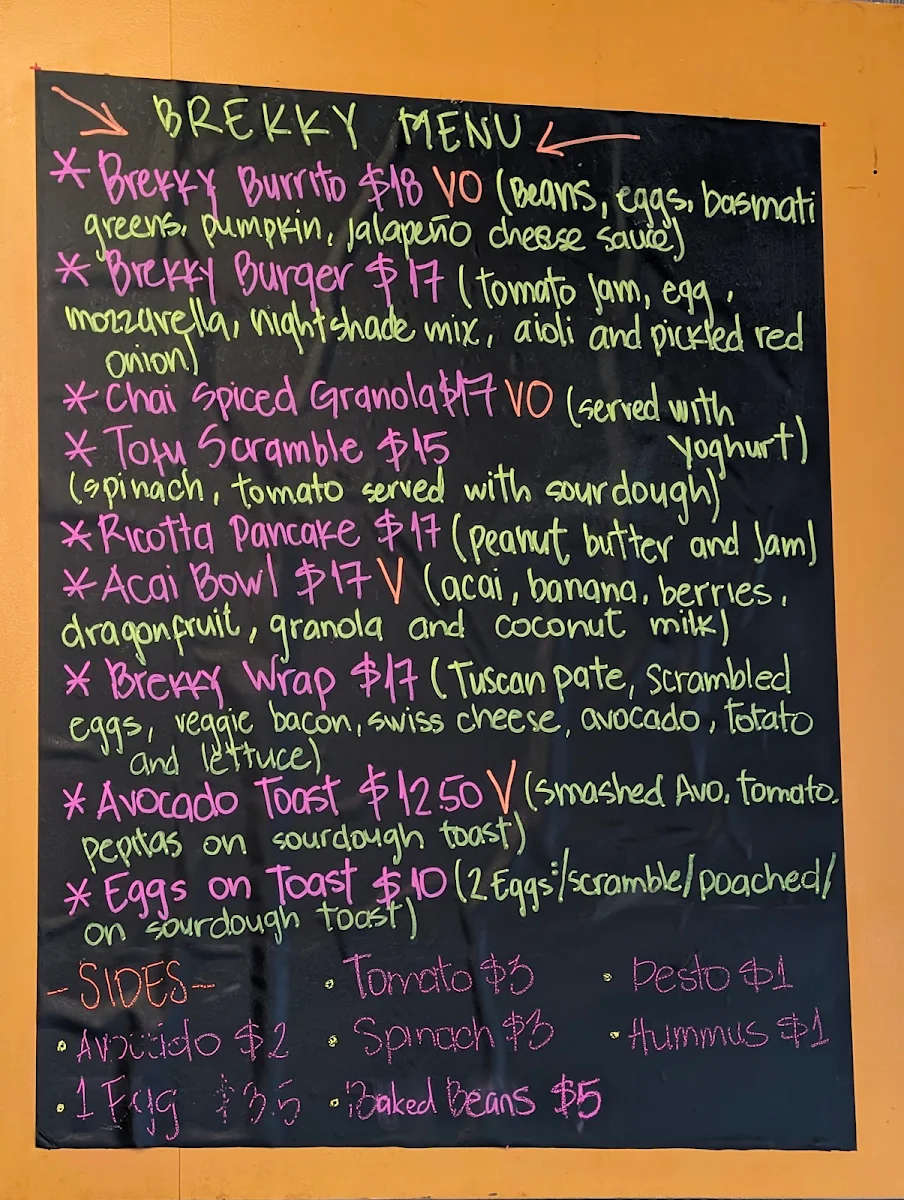 BREKKY MENU
* Brekky Burrito $18 VO (Beans, eggs, basmati
greens, pumpkin, jalapeño cheese sauce)
* Brekky Burger $17 (tomato jam, egg,
mozzarella, nightshade mix, aioli and pickled red
onion)
* Chai Spiced Granola $17 VO (served with
yoghurt)
* Tofu Scramble $15
(spinach, tomato served with sourdough)
* Ricotta Pancake $17 (peanut butter and Jam)
* Acai Bowl $17 V (acai, banana, berries,
dragonfruit, granola and coconut milk)
* Brekky Wrap $17 (Tuscan pate, scrambled
eggs, veggie bacon, swiss cheese, avocado, totato
and lettuce)
* Avocado Toast $12.50 V (smashed Avo, tomato,
pepitas on sourdough toast)
* Eggs on Toast $10 (2 Eggs:/scramble/poached/
on sourdough toast)
- SIDES - • Tomato $3 • Pesto $1
• Avocado $2 • Spinach $3 • Hummus $1
• 1 Egg $3.5 • Baked Beans $5